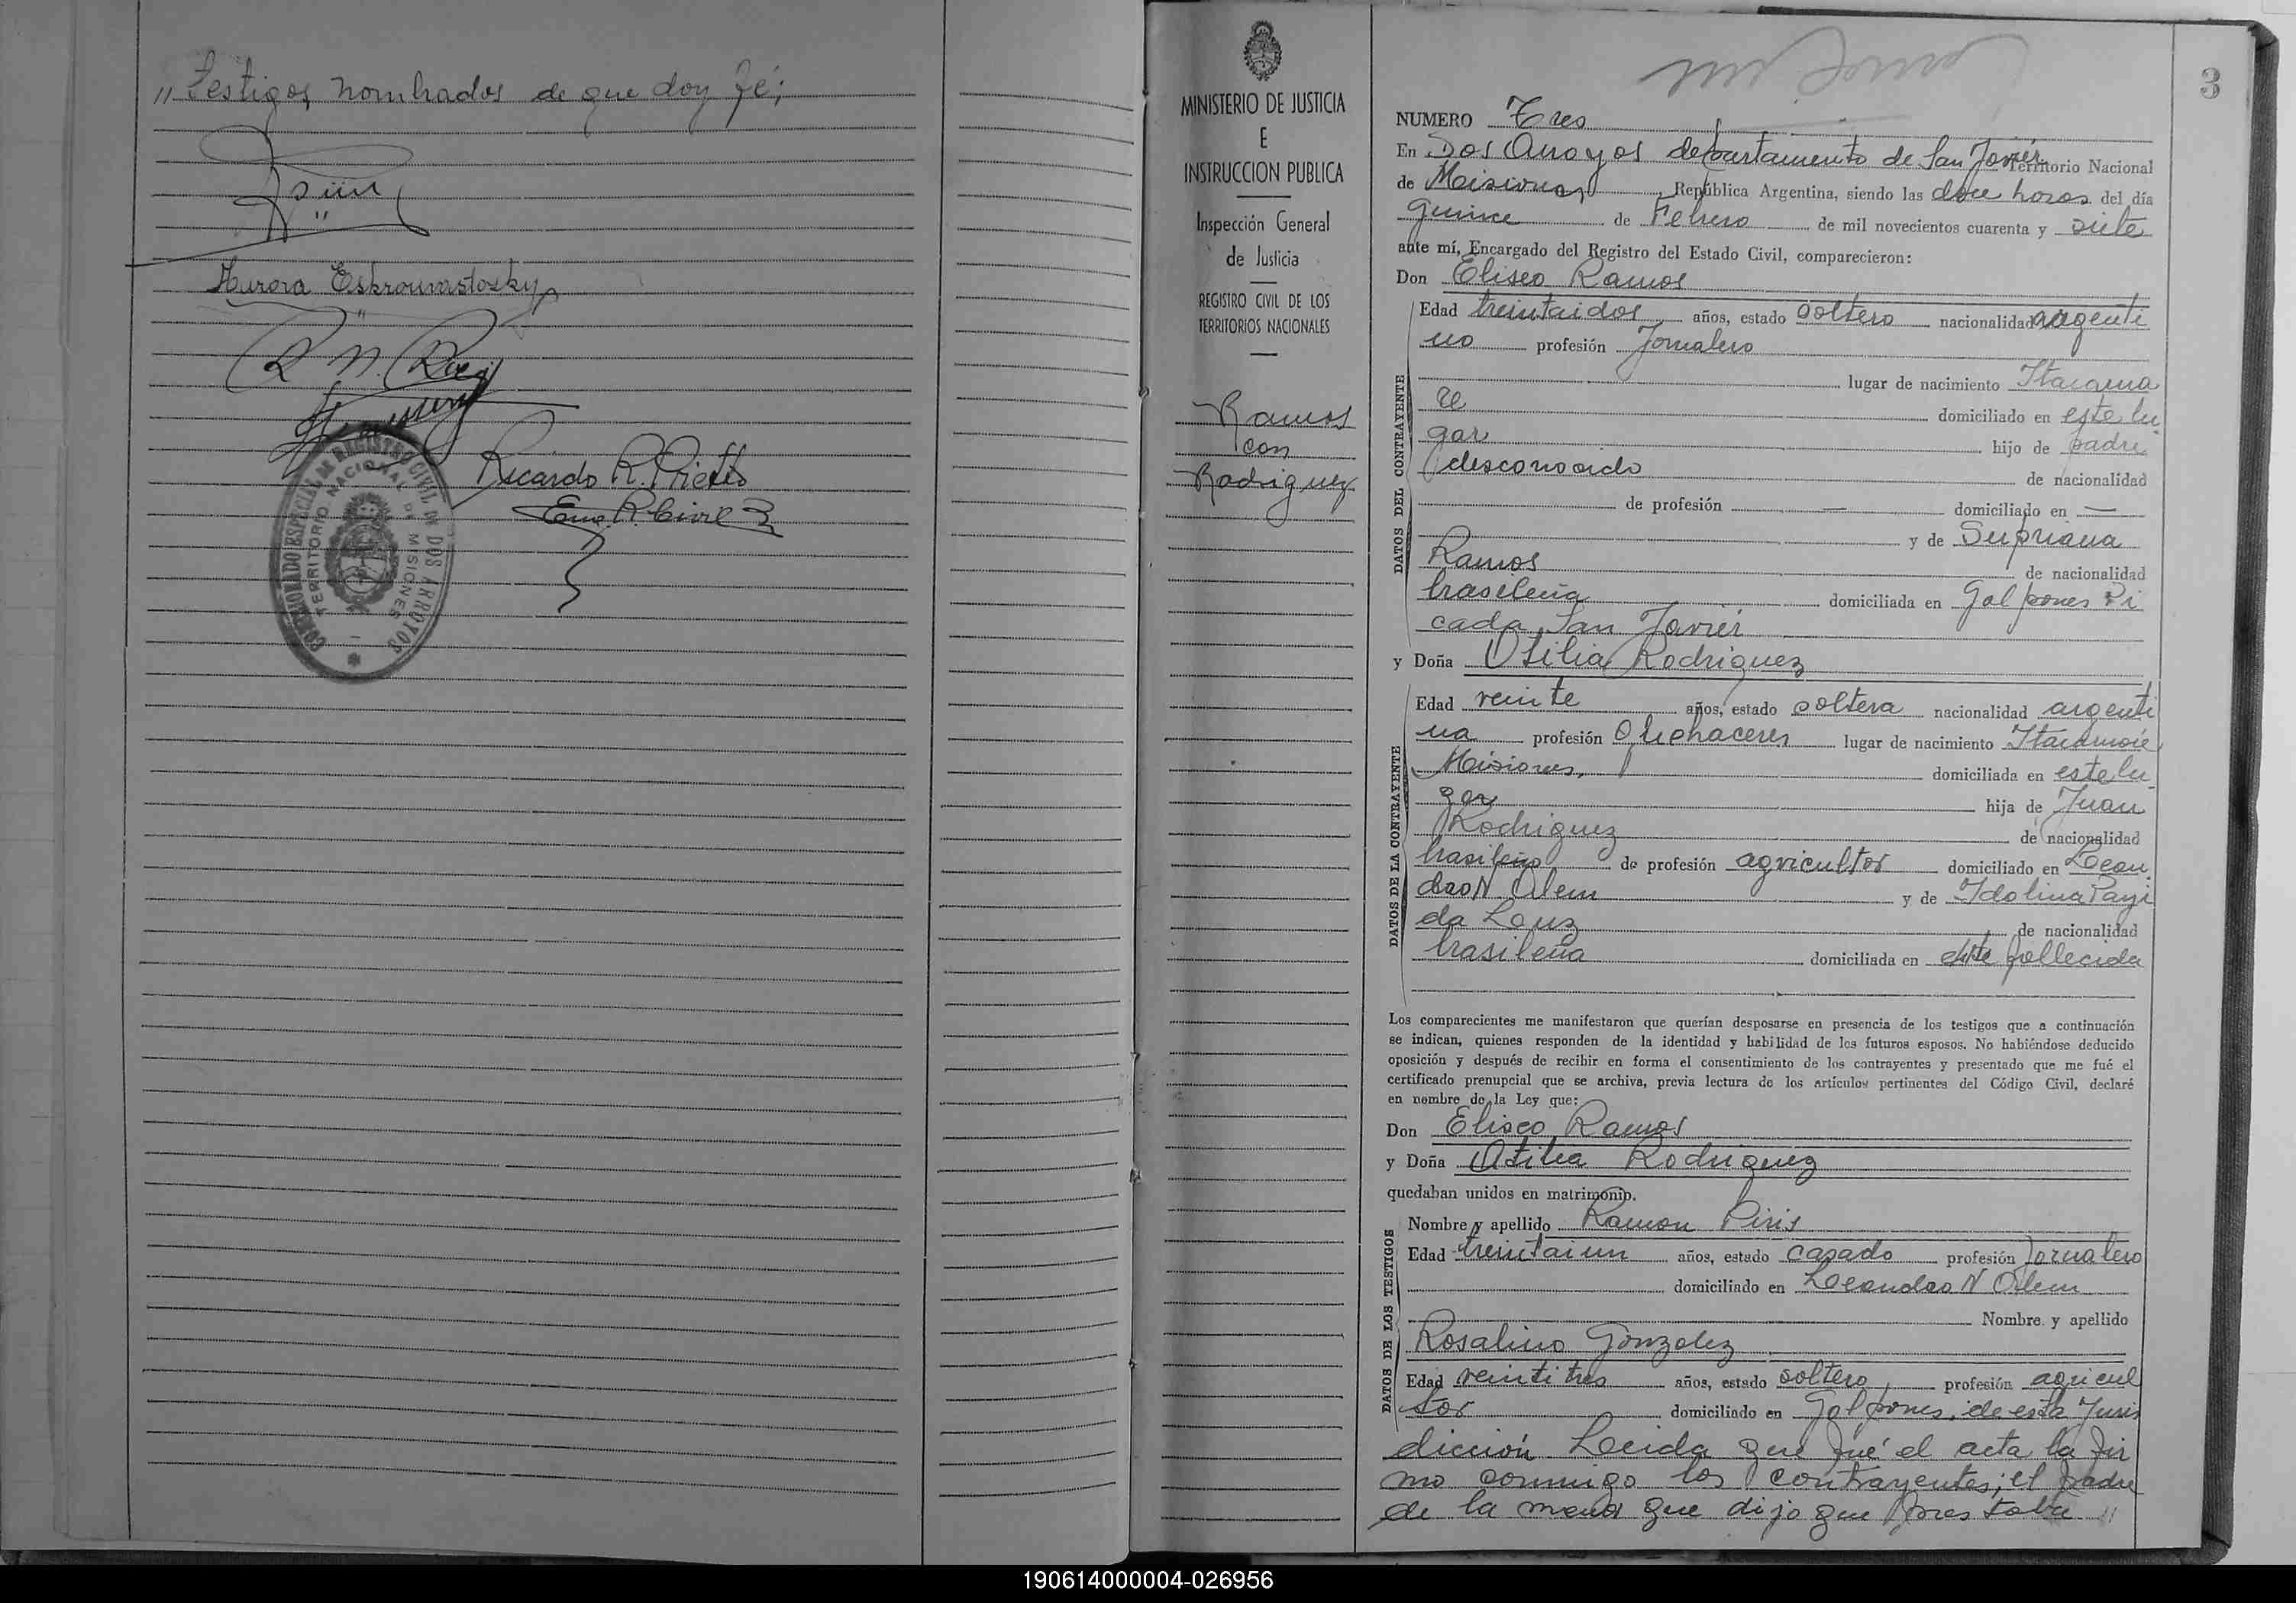 " testigos nombrados de que doy fé;
Aurora
R M.
Ricardo R. Prietto
Enc. R. Civil
COMISIONADO ESPECIAL DE REGISTRO CIVIL DE DOS ARROYOS
TERRITORIO NACIONAL DE MISIONES
MINISTERIO DE JUSTICIA
E
INSTRUCCION PUBLICA
Inspección General
de Justicia
REGISTRO CIVIL DE LOS
TERRITORIOS NACIONALES
Ramos
con
Rodriguez
3
NUMERO Tres
En Dos Arroyos departamento de San Javier Territorio Nacional
de Misiones, República Argentina, siendo las doce horas del día
quince de Febrero de mil novecientos cuarenta y siete
ante mí, Encargado del Registro del Estado Civil, comparecieron:
Don Eliseo Ramos
DATOS DEL CONTRAYENTE
Edad treintaidos años, estado soltero nacionalidad argenti
no profesión Jornalero
lugar de nacimiento Itacarua
re domiciliado en este lu
gar hijo de padre
desconocido de nacionalidad
de profesión — domiciliado en —
y de Supriana
Ramos de nacionalidad
brasileña domiciliada en Galpones Pi
cada San Javiér
y Doña Otilia Rodriguez
DATOS DE LA CONTRAYENTE
Edad veinte años, estado soltera nacionalidad argenti
na profesión Q. hehaceres lugar de nacimiento
Misiones, domiciliada en este lu
gar hija de Juan
Rodriguez de nacionalidad
brasileño de profesión agricultor domiciliado en Lean
dro N Alem y de Idolina
da Luz de nacionalidad
brasileña domiciliada en fallecida
Los comparecientes me manifestaron que querían desposarse en presencia de los testigos que a continuación
se indican, quienes responden de la identidad y habilidad de los futuros esposos. No habiéndose deducido
oposición y después de recibir en forma el consentimiento de los contrayentes y presentado que me fué el
certificado prenupcial que se archiva, previa lectura de los artículos pertinentes del Código Civil, declaré
en nombre de la Ley que:
Don Eliseo Ramos
y Doña Otilia Rodriguez
quedaban unidos en matrimonio.
DATOS DE LOS TESTIGOS
Nombre y apellido Ramon Piris
Edad treintaiun años, estado casado profesión Jornalero
domiciliado en Leandro N Alem
Nombre y apellido
Rosalino Gonzalez
Edad veintitres años, estado soltero profesión agricul
tor domiciliado en Galpones, de esta Juris
dicción Leida que fué el acta la fir
mo conmigo los contrayentes; el padre
de la menor que dijo que prestaba "
190614000004-026956